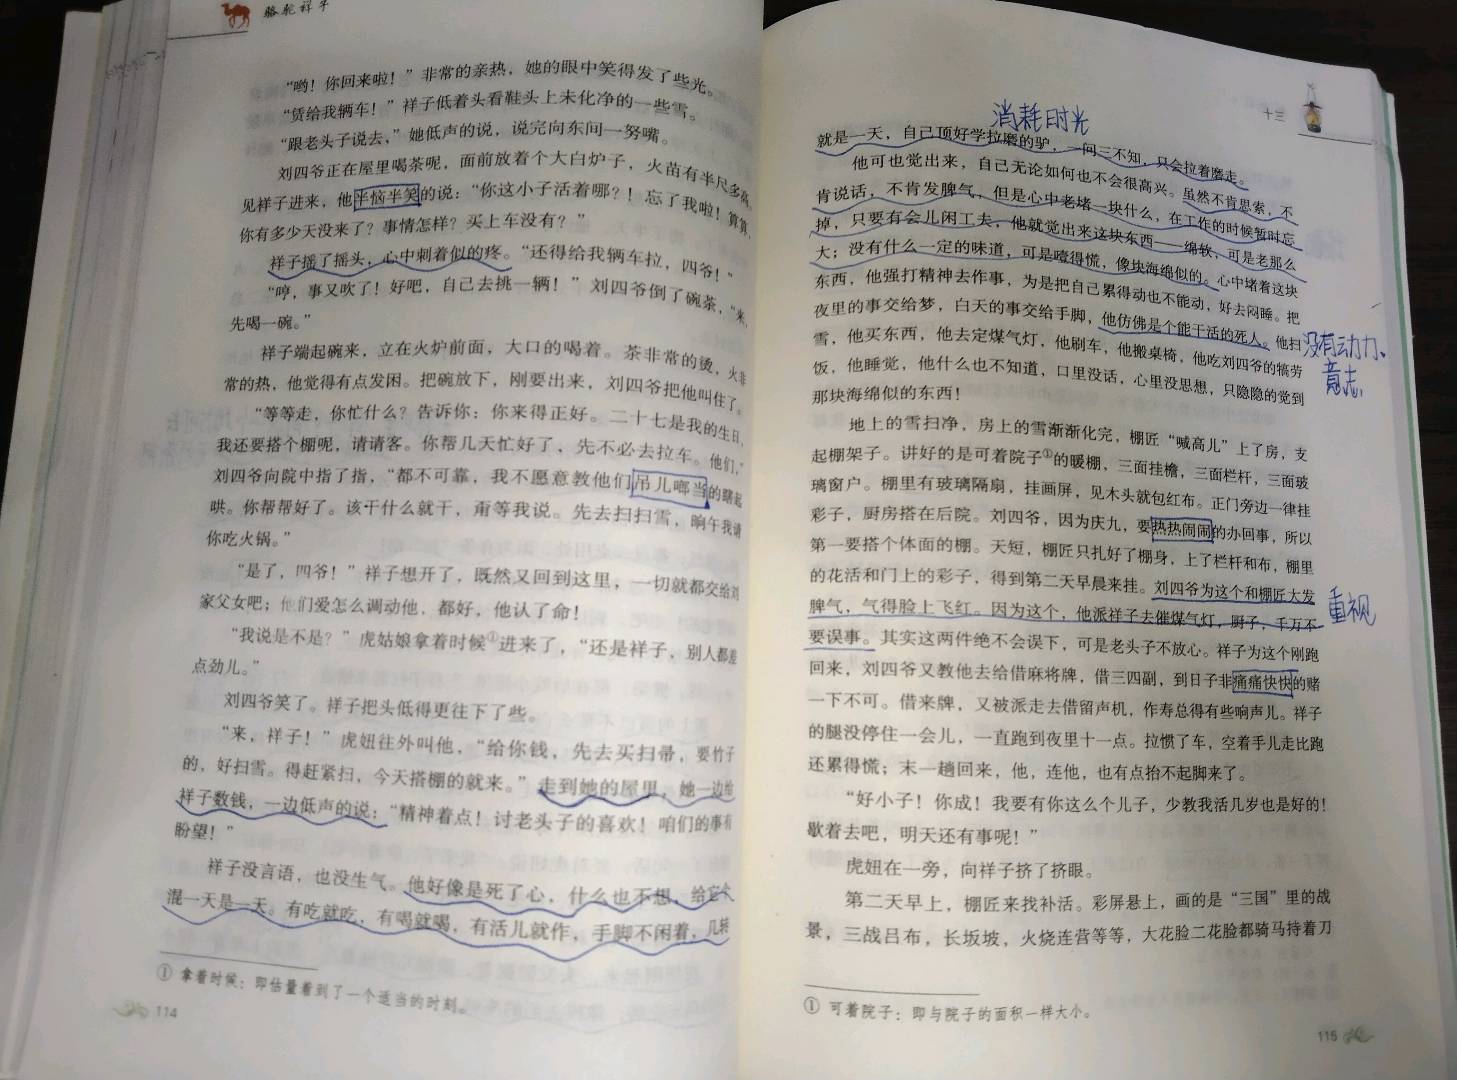 骆驼祥子
“哟！你回来啦！”非常的亲热，她的眼中笑得发了些光。
“赁给我辆车！”祥子低着头看鞋头上未化净的一些雪。
“跟老头子说去，”她低声的说，说完向东间一努嘴。
刘四爷正在屋里喝茶呢，面前放着个大白炉子，火苗有半尺多高。
见祥子进来，他半恼半笑的说：“你这小子活着哪？！忘了我啦！算算，
你有多少天没来了？事情怎样？买上车没有？”
祥子摇了摇头，心中刺着似的疼。“还得给我辆车拉，四爷！”
“哼，事又吹了！好吧，自己去挑一辆！”刘四爷倒了碗茶，“来，
先喝一碗。”
祥子端起碗来，立在火炉前面，大口的喝着。茶非常的烫，火非
常的热，他觉得有点发困。把碗放下，刚要出来，刘四爷把他叫住了。
“等等走，你忙什么？告诉你：你来得正好。二十七是我的生日，
我还要搭个棚呢，请请客。你帮几天忙好了，先不必去拉车。他们，”
刘四爷向院中指了指，“都不可靠，我不愿意教他们吊儿啷当的瞎起
哄。你帮帮好了。该干什么就干，甭等我说。先去扫扫雪，晌午我请
你吃火锅。”
“是了，四爷！”祥子想开了，既然又回到这里，一切就都交给刘
家父女吧；他们爱怎么调动他，都好，他认了命！
“我说是不是？”虎姑娘拿着时候①进来了，“还是祥子，别人都差
点劲儿。”
刘四爷笑了。祥子把头低得更往下了些。
“来，祥子！”虎妞往外叫他，“给你钱，先去买扫帚，要竹子
的，好扫雪。得赶紧扫，今天搭棚的就来。”走到她的屋里，她一边给
祥子数钱，一边低声的说：“精神着点！讨老头子的喜欢！咱们的事有
盼望！”
祥子没言语，也没生气。他好像是死了心，什么也不想，给它个
混一天是一天。有吃就吃，有喝就喝，有活儿就作，手脚不闲着，几转
① 拿着时候：即估量着到了一个适当的时刻。
114
十三
消耗时光
就是一天，自己顶好学拉磨的驴，一问三不知，只会拉着磨走。
他可也觉出来，自己无论如何也不会很高兴。虽然不肯思索，不
肯说话，不肯发脾气，但是心中老堵一块什么，在工作的时候暂时忘
掉，只要有会儿闲工夫，他就觉出来这块东西——绵软，可是老那么
大；没有什么一定的味道，可是噎得慌，像块海绵似的。心中堵着这块
东西，他强打精神去作事，为是把自己累得动也不能动，好去闷睡。把
夜里的事交给梦，白天的事交给手脚，他仿佛是个能干活的死人。他扫
雪，他买东西，他去定煤气灯，他刷车，他搬桌椅，他吃刘四爷的犒劳
饭，他睡觉，他什么也不知道，口里没话，心里没思想，只隐隐的觉到
那块海绵似的东西！
没有动力、
意志
地上的雪扫净，房上的雪渐渐化完，棚匠“喊高儿”上了房，支
起棚架子。讲好的是可着院子①的暖棚，三面挂檐，三面栏杆，三面玻
璃窗户。棚里有玻璃隔扇，挂画屏，见木头就包红布。正门旁边一律挂
彩子，厨房搭在后院。刘四爷，因为庆九，要热热闹闹的办回事，所以
第一要搭个体面的棚。天短，棚匠只扎好了棚身，上了栏杆和布，棚里
的花活和门上的彩子，得到第二天早晨来挂。刘四爷为这个和棚匠大发
脾气，气得脸上飞红。因为这个，他派祥子去催煤气灯，厨子，千万不
要误事。其实这两件绝不会误下，可是老头子不放心。祥子为这个刚跑
回来，刘四爷又教他去给借麻将牌，借三四副，到日子非痛痛快快的赌
一下不可。借来牌，又被派走去借留声机，作寿总得有些响声儿。祥子
的腿没停住一会儿，一直跑到夜里十一点。拉惯了车，空着手儿走比跑
还累得慌；末一趟回来，他，连他，也有点抬不起脚来了。
重视
“好小子！你成！我要有你这么个儿子，少教我活几岁也是好的！
歇着去吧，明天还有事呢！”
虎妞在一旁，向祥子挤了挤眼。
第二天早上，棚匠来找补活。彩屏悬上，画的是“三国”里的战
景，三战吕布，长坂坡，火烧连营等等，大花脸二花脸都骑马持着刀
① 可着院子：即与院子的面积一样大小。
115